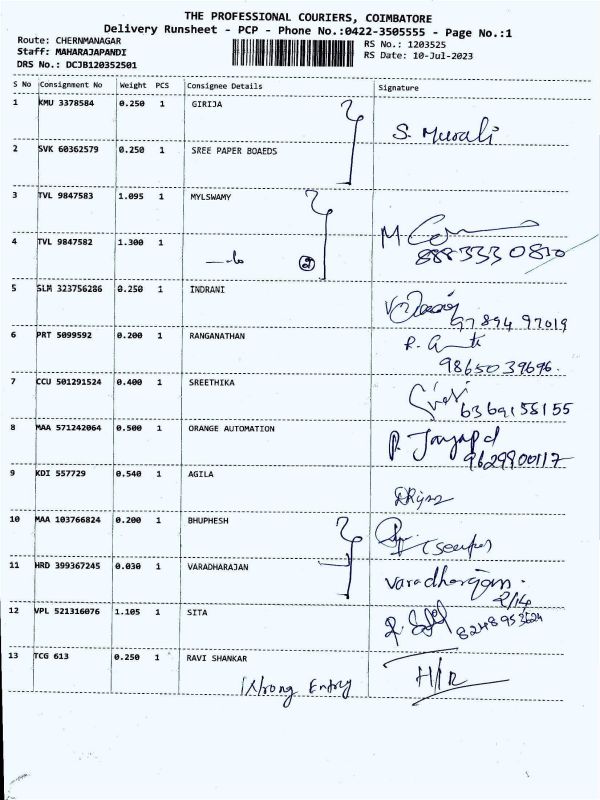 THE PROFESSIONAL COURIERS, COIMBATORE
Delivery Runsheet - PCP - Phone No.:0422-3505555 - Page No.:1
Route: CHERMANAGAR
Staff: MAHARAJAPANDI
DRS No.: DCJB120352501
RS No.: 1203525
RS Date: 10-Jul-2023
S No Consignment No Weight PCS Consignee Details Signature
1 KMU 3378584 0.250 1 GIRIJA
S. Murali
2 SVK 60362579 0.250 1 SREE PAPER BOAEDS
3 TVL 9847583 1.095 1 MYLSWAMY
4 TVL 9847582 1.300 1
8883330810
5 SLM 323756286 0.250 1 INDRANI
97894 97019
6 PRT 5099592 0.200 1 RANGANATHAN
9865039696.
7 CCU 501291524 0.400 1 SREETHIKA
6369155155
8 MAA 571242064 0.500 1 ORANGE AUTOMATION
9629900117
9 KDI 557729 0.540 1 AGILA
10 MAA 103766824 0.200 1 BHUPHESH
11 HRD 399367245 0.030 1 VARADHARAJAN
varadharajan.
2/14
12 VPL 521316076 1.105 1 SITA
8248953624
13 TCG 613 0.250 1 RAVI SHANKAR
H/R
Wrong Entry